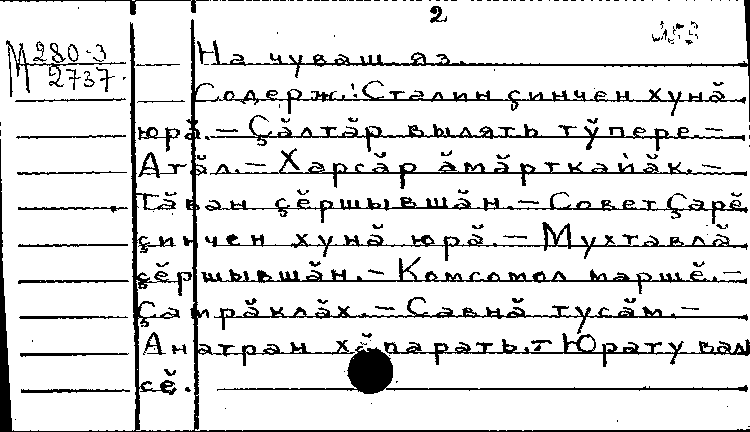 2
М 280-3
2737
На чуваш. яз.
Содерж.: Сталин çинчен хунă
юрă.- Çăлтăр вылять тӳпере.-
Атăл.- Харсăр ăмăрткайăк.-
Тăван çĕршывшăн.- Совет Çарĕ
çинчен хунă юрă.- Мухтавлă
çĕршывшăн.- Комсомол маршĕ.-
Çамрăклăх.- Савнă тусăм.-
Анатран хăпарать.- Юрату вал
сĕ.